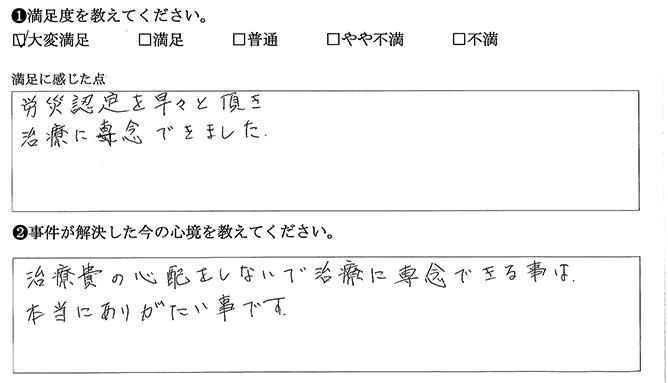 ❶満足度を教えてください。
☑大変満足 □満足 □普通 □やや不満 □不満
満足に感じた点
労災認定を早々と頂き
治療に専念できました.
❷事件が解決した今の心境を教えてください。
治療費の心配をしないで治療に専念できる事は.
本当にありがたい事です.